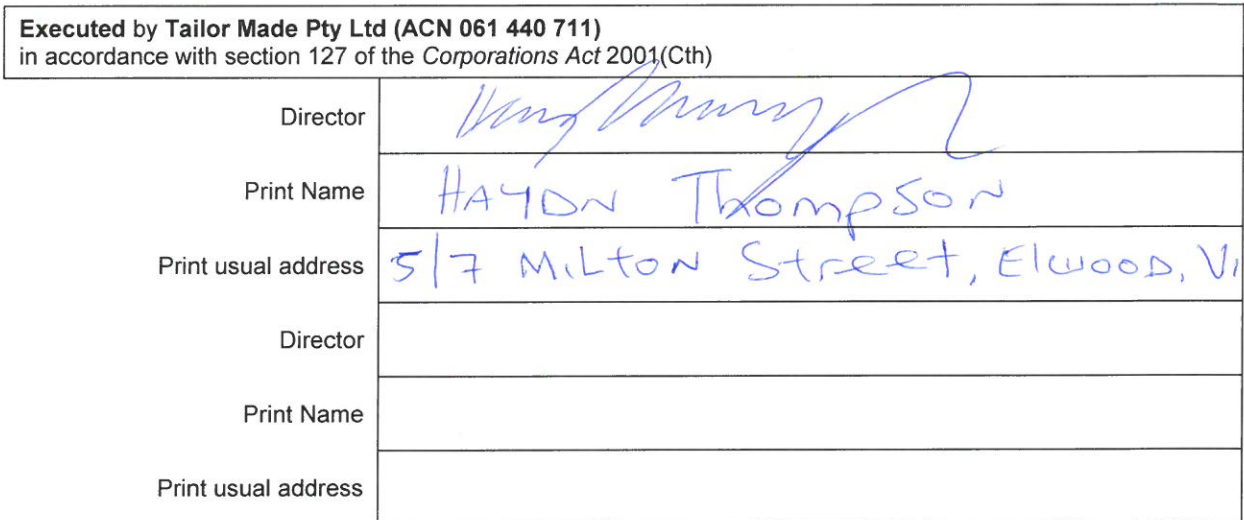 Executed by Tailor Made Pty Ltd (ACN 061 440 711)
in accordance with section 127 of the Corporations Act 2001(Cth)
Director
Print Name HAYDN Thompson
Print usual address 5/7 Milton Street, Elwood, Vi
Director
Print Name
Print usual address